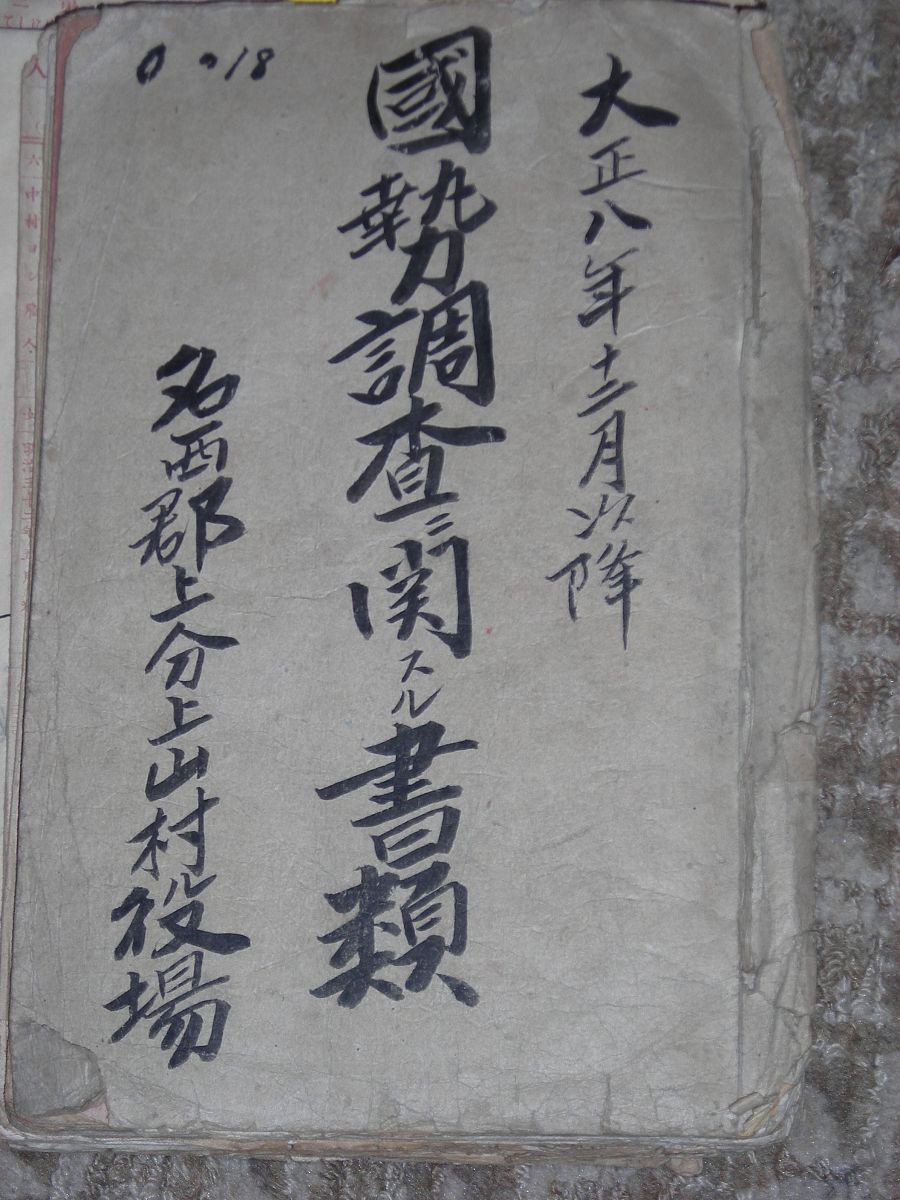 大正八年十二月以降
國勢調査ニ関スル書類
名西郡上分上山村役場